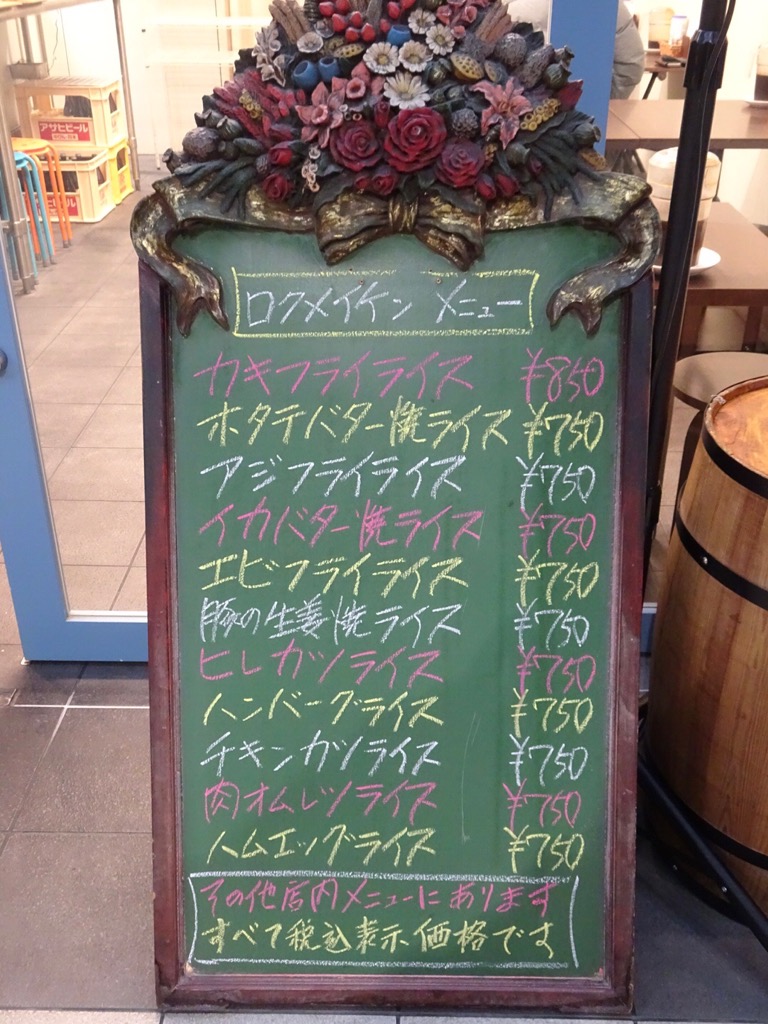 アサヒビール
ロクメイケン メニュー
カキフライライス ¥850
ホタテバター焼ライス ¥750
アジフライライス ¥750
イカバター焼ライス ¥750
エビフライライス ¥750
豚の生姜焼ライス ¥750
ヒレカツライス ¥750
ハンバーグライス ¥750
チキンカツライス ¥750
肉オムレツライス ¥750
ハムエッグライス ¥750
その他店内メニューにあります
すべて税込表示価格です